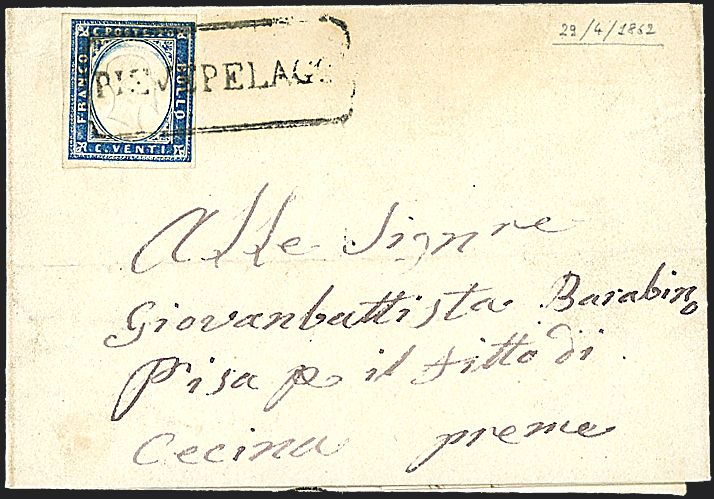 29/4/1862
C. POSTE. 20
FRANCO
BOLLO
C. VENTI.
PIEVEPELAGO
Alle Signre
Giovanbattista Barabino
Pisa p il fitto di
Cecina preme